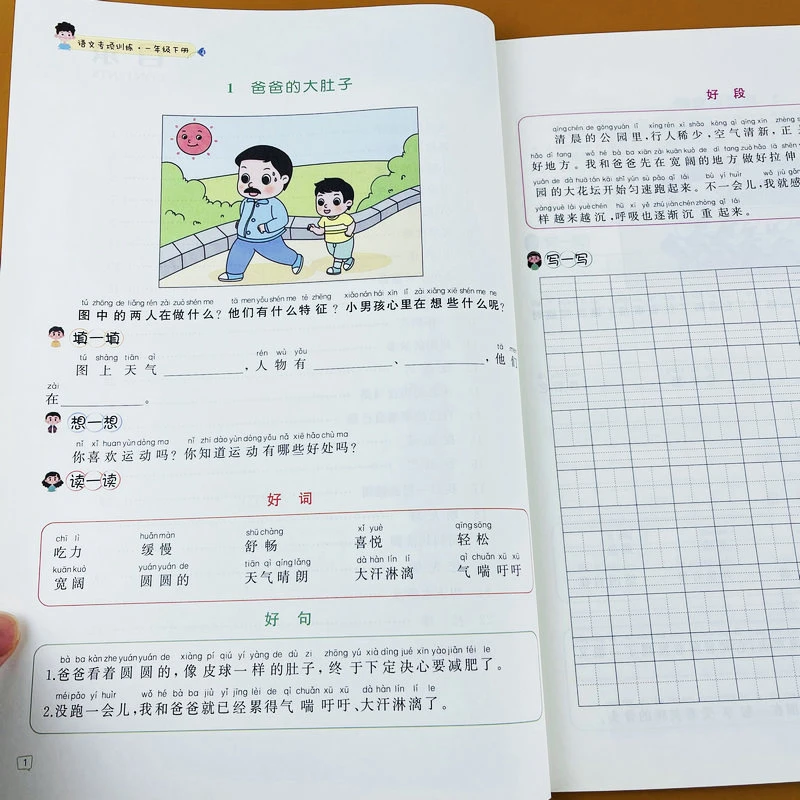 语文专项训练·一年级下册
1 爸爸的大肚子
tú zhōng de liǎng rén zài zuò shén me tā men yǒu shén me tè zhēng xiǎo nán hái xīn lǐ zài xiǎng xiē shén me ne
图中的两人在做什么?他们有什么特征?小男孩心里在想些什么呢?
填一填
tú shàng tiān qì rén wù yǒu tā
图上天气________,人物有________、________,他们
zài
在________。
想一想
nǐ xǐ huan yùn dòng ma nǐ zhī dào yùn dòng yǒu nǎ xiē hǎo chù ma
你喜欢运动吗?你知道运动有哪些好处吗?
读一读
好词
chī lì huǎn màn shū chàng xǐ yuè qīng sōng
吃力 缓慢 舒畅 喜悦 轻松
kuān kuò yuán yuán de tiān qì qíng lǎng dà hàn lín lí qì chuǎn xū xū
宽阔 圆圆的 天气晴朗 大汗淋漓 气喘吁吁
好句
bà ba kàn zhe yuán yuán de xiàng pí qiú yí yàng de dù zi zhōng yú xià dìng jué xīn yào jiǎn féi le
1.爸爸看着圆圆的,像皮球一样的肚子,终于下定决心要减肥了。
méi pǎo yí huìr wǒ hé bà ba jiù yǐ jīng lèi de qì chuǎn xū xū dà hàn lín lí le
2.没跑一会儿,我和爸爸就已经累得气喘吁吁、大汗淋漓了。
1
好段
qīng chén de gōng yuán lǐ xíng rén xī shǎo kōng qì qīng xīn zhèng
清晨的公园里,行人稀少,空气清新,正
hǎo dì fang wǒ hé bà ba xiān zài kuān kuò de dì fang zuò hǎo lā shēn
好地方。我和爸爸先在宽阔的地方做好拉伸
yuán de dà huā tán kāi shǐ yún sù pǎo qǐ lái bù yí huìr wǒ jiù gǎn
园的大花坛开始匀速跑起来。不一会儿,我就感
yàng yuè lái yuè chén hū xī yě zhú jiàn chén zhòng qǐ lái
样越来越沉,呼吸也逐渐沉重起来。
写一写